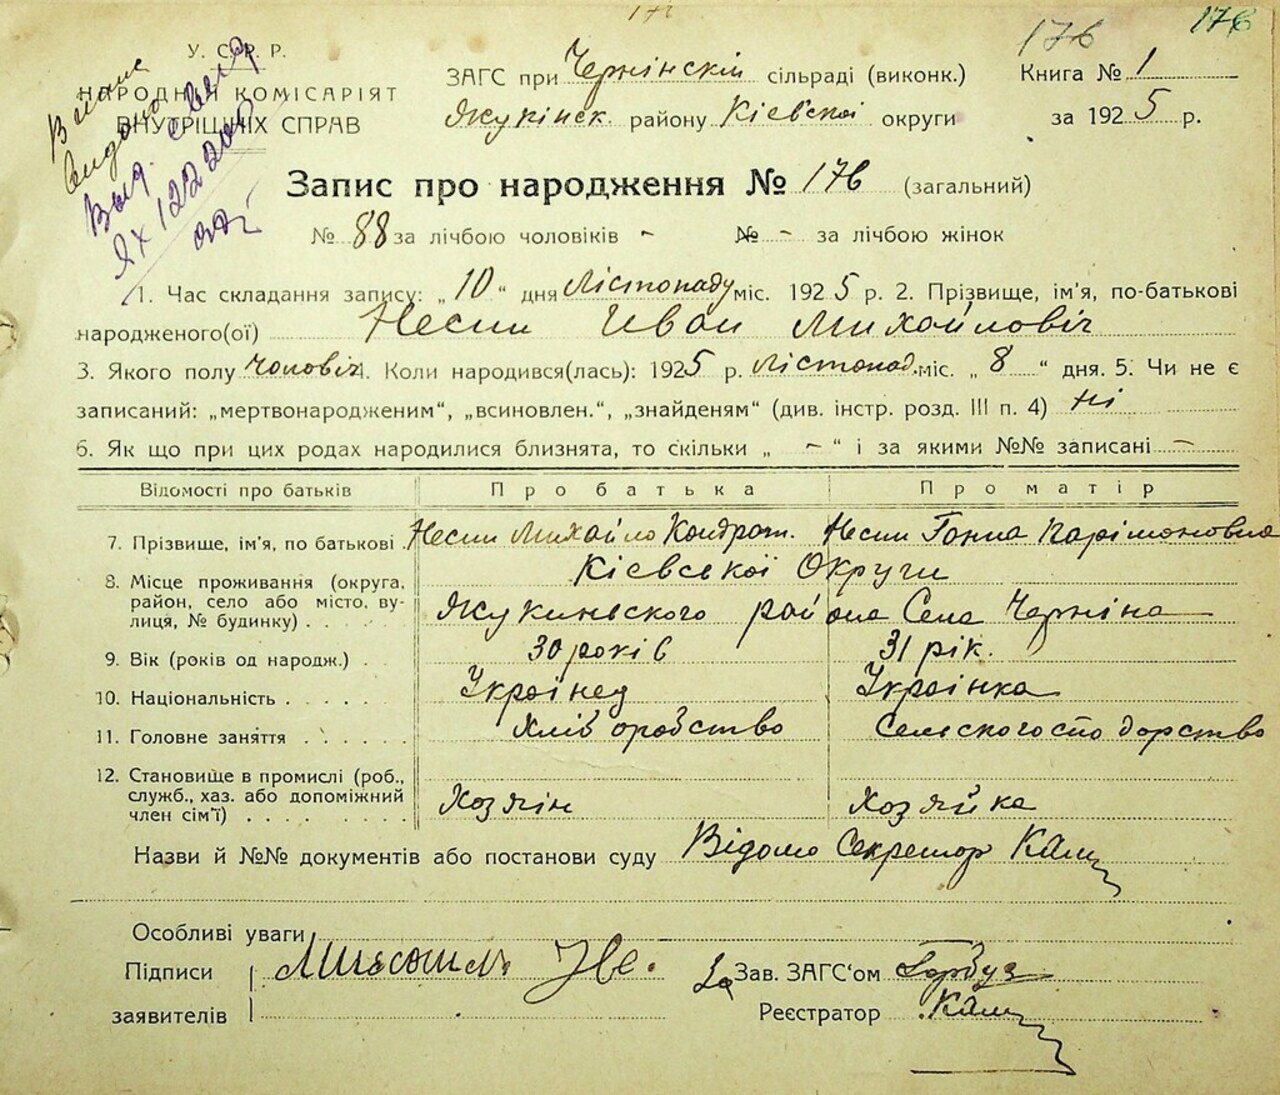 176 176
У. С. Р. Р.
НАРОДНІЙ КОМІСАРІЯТ
ВНУТРІШНІХ СПРАВ
ЗАГС при Чернінскій сільраді (виконк.) Книга № 1
Жукінск. району Кієвскоі округи за 1925 р.
Запис про народження № 176 (загальний)
№ 88 за лічбою чоловіків - № - за лічбою жінок
1. Час складання запису: „10“ дня Лістопаду міс. 1925 р. 2. Прізвище, ім'я, по-батькові
народженого(ої) Несин Иван Михайловіч
3. Якого полу Чоловіч 4. Коли народився(лась): 1925 р. лістопад. міс. „8“ дня. 5. Чи не є
записаний: „мертвонародженим“, „всиновлен.“, „знайденям“ (див. інстр. розд. III п. 4) ні
6. Як що при цих родах народилися близнята, то скільки „ - “ і за якими №№ записані -
Відомості про батьків Про батька Про матір
7. Прізвище, ім'я, по батькові Несин Михайло Кондрат. Несин Ганна Парімоновна
8. Місце проживання (округа, район, село або місто, вулиця, № будинку) Кієвськоі Округи
Жукинського района Села Черніна
9. Вік (років од народж.) 30 років 31 рік.
10. Національність Украінец Украінка
11. Головне заняття Хліборобство Селескогосподорство
12. Становище в промислі (роб., служб., хаз. або допоміжний член сім'ї) Хозяін Хозяйка
Назви й №№ документів або постанови суду Відомо Секретар
Особливі уваги
Підписи
заявителів
За Зав. ЗАГС'ом Гарбуз
Реєстратор